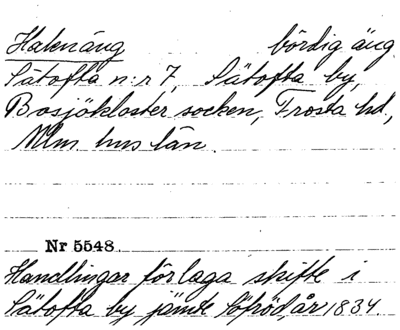 Hakenäng bördig äng
Sätofta n:r 7, Sätofta by,
Bosjökloster socken, Frosta hd,
Mlm. hus län.
Nr 5548
Handlingar för laga skifte i
Sätofta by jämte år 1834.